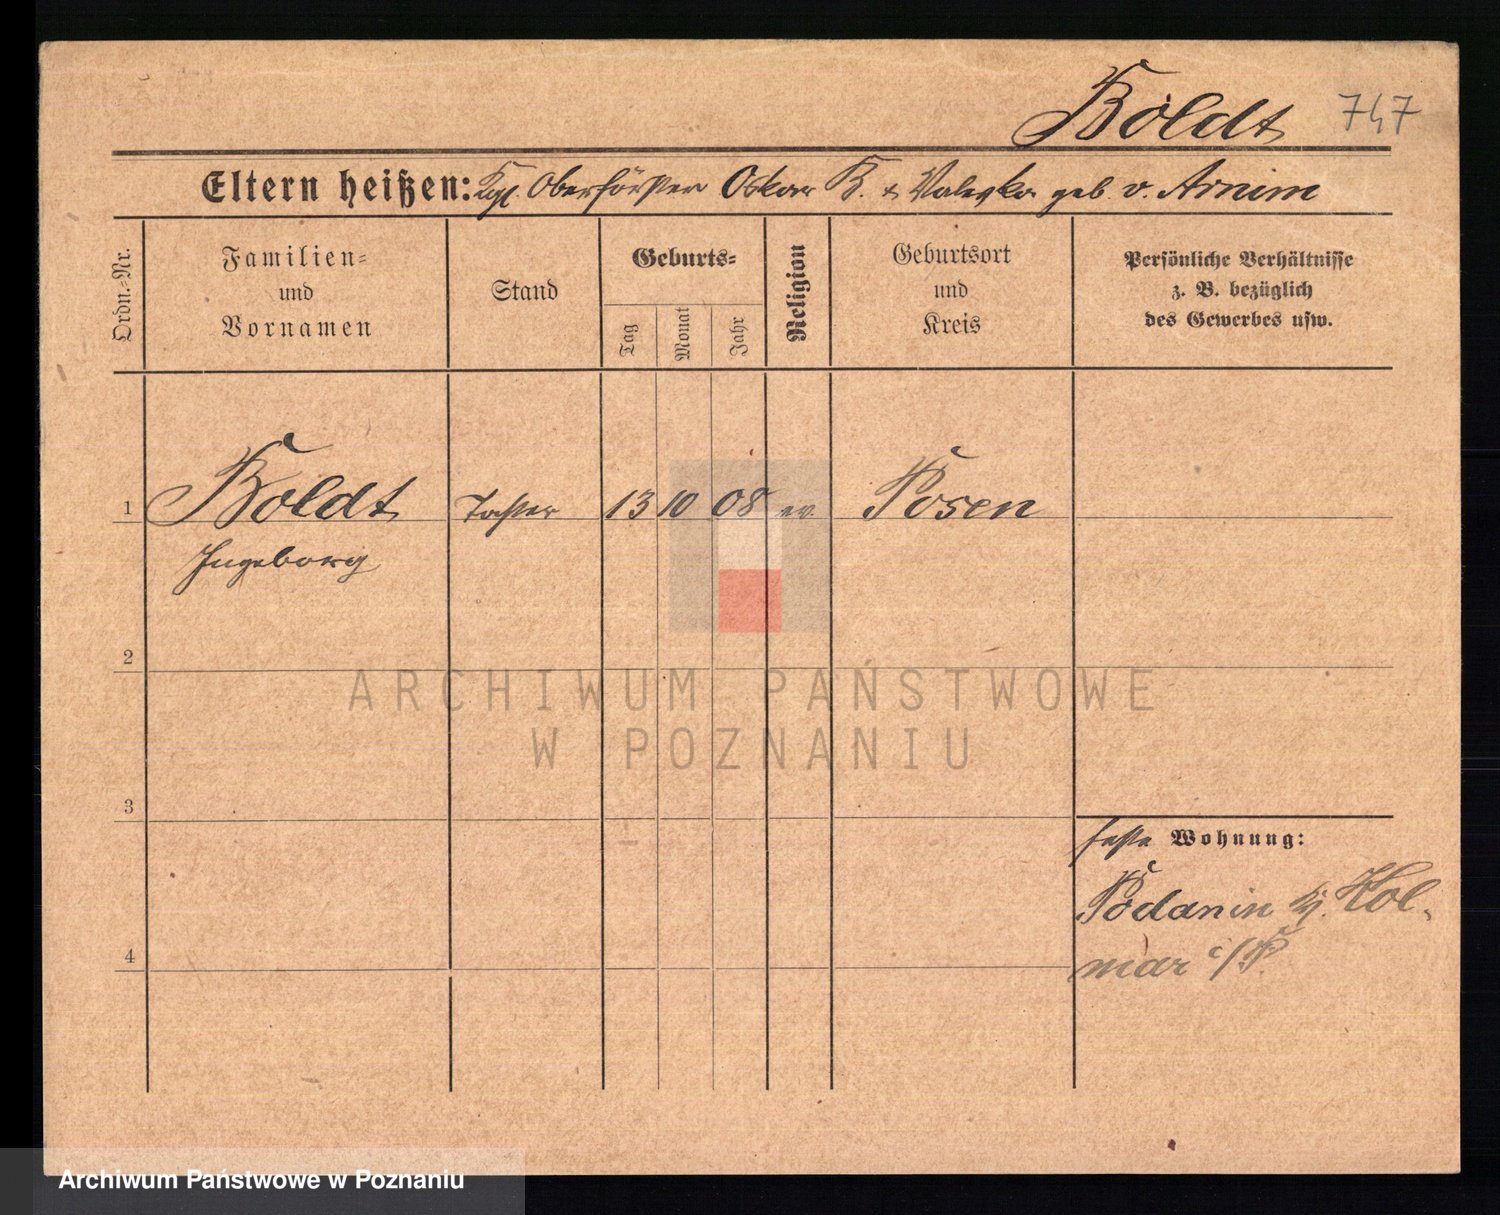 Boldt 747
Eltern heißen: Kgl. Oberförster Oskar B. + Valeska geb. v. Arnim
Ordn.-Nr.
Familien-
und
Vornamen
Stand
Geburts-
Tag
Monat
Jahr
Religion
Geburtsort
und
Kreis
Persönliche Verhältnisse
z. B. bezüglich
des Gewerbes usw.
1 Boldt Tochter 13 10 08 ev. Posen
Ingeborg
2
ARCHIWUM PAŃSTWOWE
W POZNANIU
3
feste Wohnung:
Podanin Kr. Kol-
4 mar i/P.
Archiwum Państwowe w Poznaniu